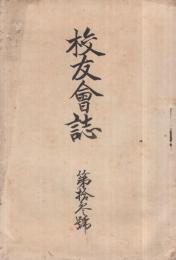 校友會誌
第拾参號